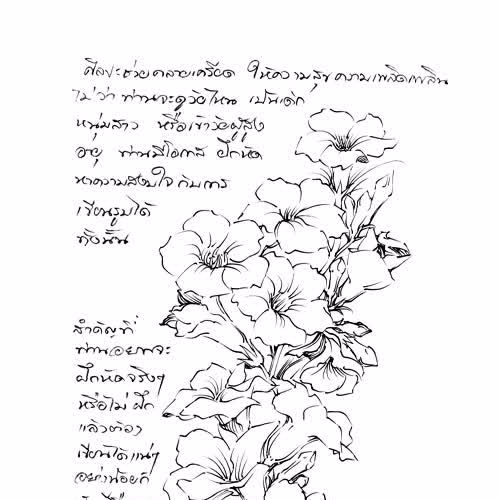 ศิลปะช่วยคลายเครียด ให้ความสุข ความเพลิดเพลิน
ไม่ว่า ท่านจะอยู่วัยไหน เป็นเด็ก
หนุ่มสาว หรือเข้าวัยผู้สูง
อายุ ท่านมีโอกาส ฝึกหัด
หาความสงบใจ กับการ
เขียนรูปได้
ทั้งนั้น
สำคัญที่
ท่านอยากจะ
ฝึกหัดจริงๆ
หรือไม่ ฝึก
แล้วต้อง
เขียนได้แน่ๆ
อย่างน้อยก็